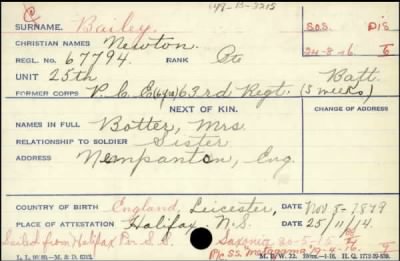 C 649-B-3215
SURNAME. Bailey. S.O.S. Dis
CHRISTIAN NAMES Newton. 24-8-16. 6
REGL. NO. 67794. RANK Pte
UNIT 25th Batt.
FORMER CORPS 63rd Regt. (3 weeks)
NEXT OF KIN. CHANGE OF ADDRESS
NAMES IN FULL Botter, Mrs.
RELATIONSHIP TO SOLDIER Sister
ADDRESS Nempanton, Eng.
COUNTRY OF BIRTH England, Leicester, Nov 5-1879
PLACE OF ATTESTATION Halifax, N.S. 25/11/14
Sailed from Halifax Per S.S. Saxonia 20-5-15
S.S. Metagama 19-4-16.
M. F. W. 22.